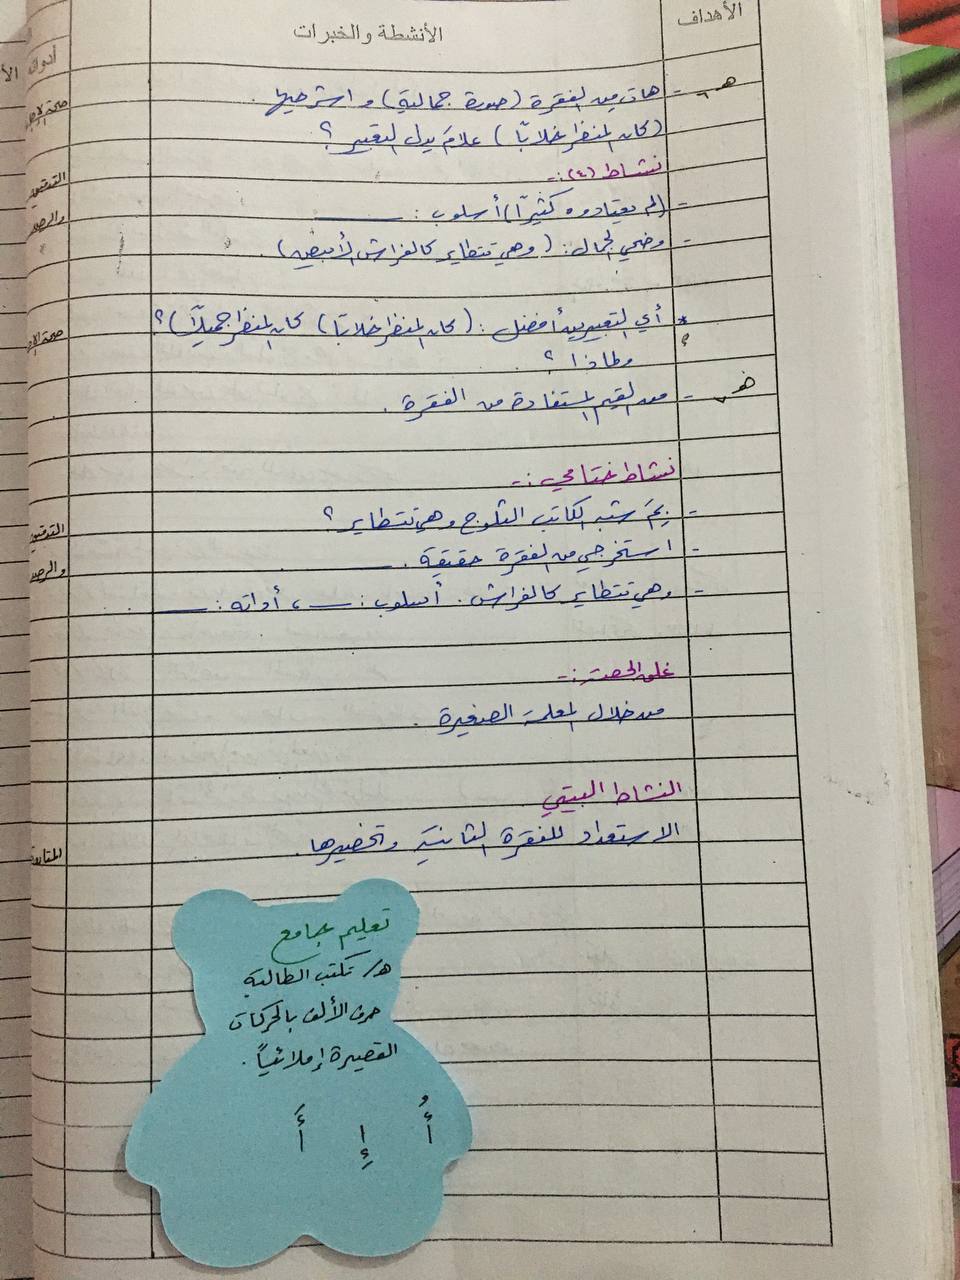 الأهداف
الأنشطة والخبرات
هـ - هات من الفقرة (صورة جمالية) واشرحيها.
(كان المنظر خلابًا) علامَ يدل التعبير؟
نشاط (٤):-
- (لم يعتادوه كثيرًا) أسلوب: ــــــــ
- وضحي الجمال: (وهي تتطاير كالفراش الأبيض).
* أي التعبيرين أفضل: (كان المنظر خلابًا) كان المنظر جميلًا)؟
ولماذا؟
هـ - من القيم المستفادة من الفقرة.
نشاط ختامي:-
- بِمَ شبه الكاتب الثلوج وهي تتطاير؟
- استخرجي من الفقرة حقيقة. ــــــــ
- وهي تتطاير كالفراش. أسلوب: ــــــ، أداته: ــــــــ
غلق الحصة:-
من خلال المعلمة الصغيرة.
النشاط البيتي
الاستعداد للفقرة الثانية وتحضيرها.
تعليم جامع
هـ/ تكتب الطالبة
حرف الألف بالحركات
القصيرة إملائيًا.
أُ إِ أَ